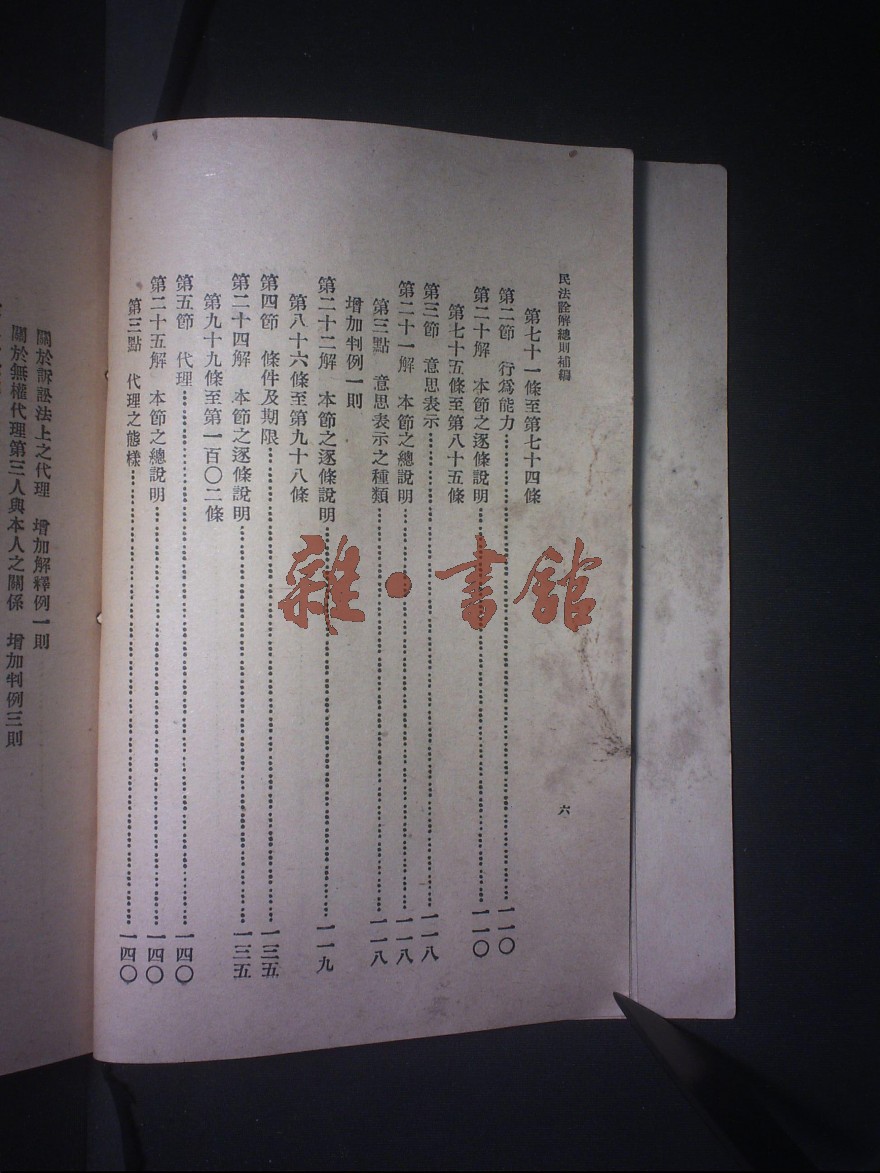 民法詮解總則補編
六
第七十一條至第七十四條
第二節　行爲能力……一一〇
第二十解　本節之逐條說明……一一〇
第七十五條至第八十五條
第三節　意思表示……一一八
第二十一解　本節之總說明……一一八
第三點　意思表示之種類……一一八
增加判例一則
第二十二解　本節之逐條說明……一一九
第八十六條至第九十八條
第四節　條件及期限……一三五
第二十四解　本節之逐條說明……一三五
第九十九條至第一百〇二條
第五節　代理……一四〇
第二十五解　本節之總說明……一四〇
第三點　代理之態樣……一四〇
關於訴訟法上之代理　增加解釋例一則
關於無權代理第三人與本人之關係　增加判例三則
雜·書館